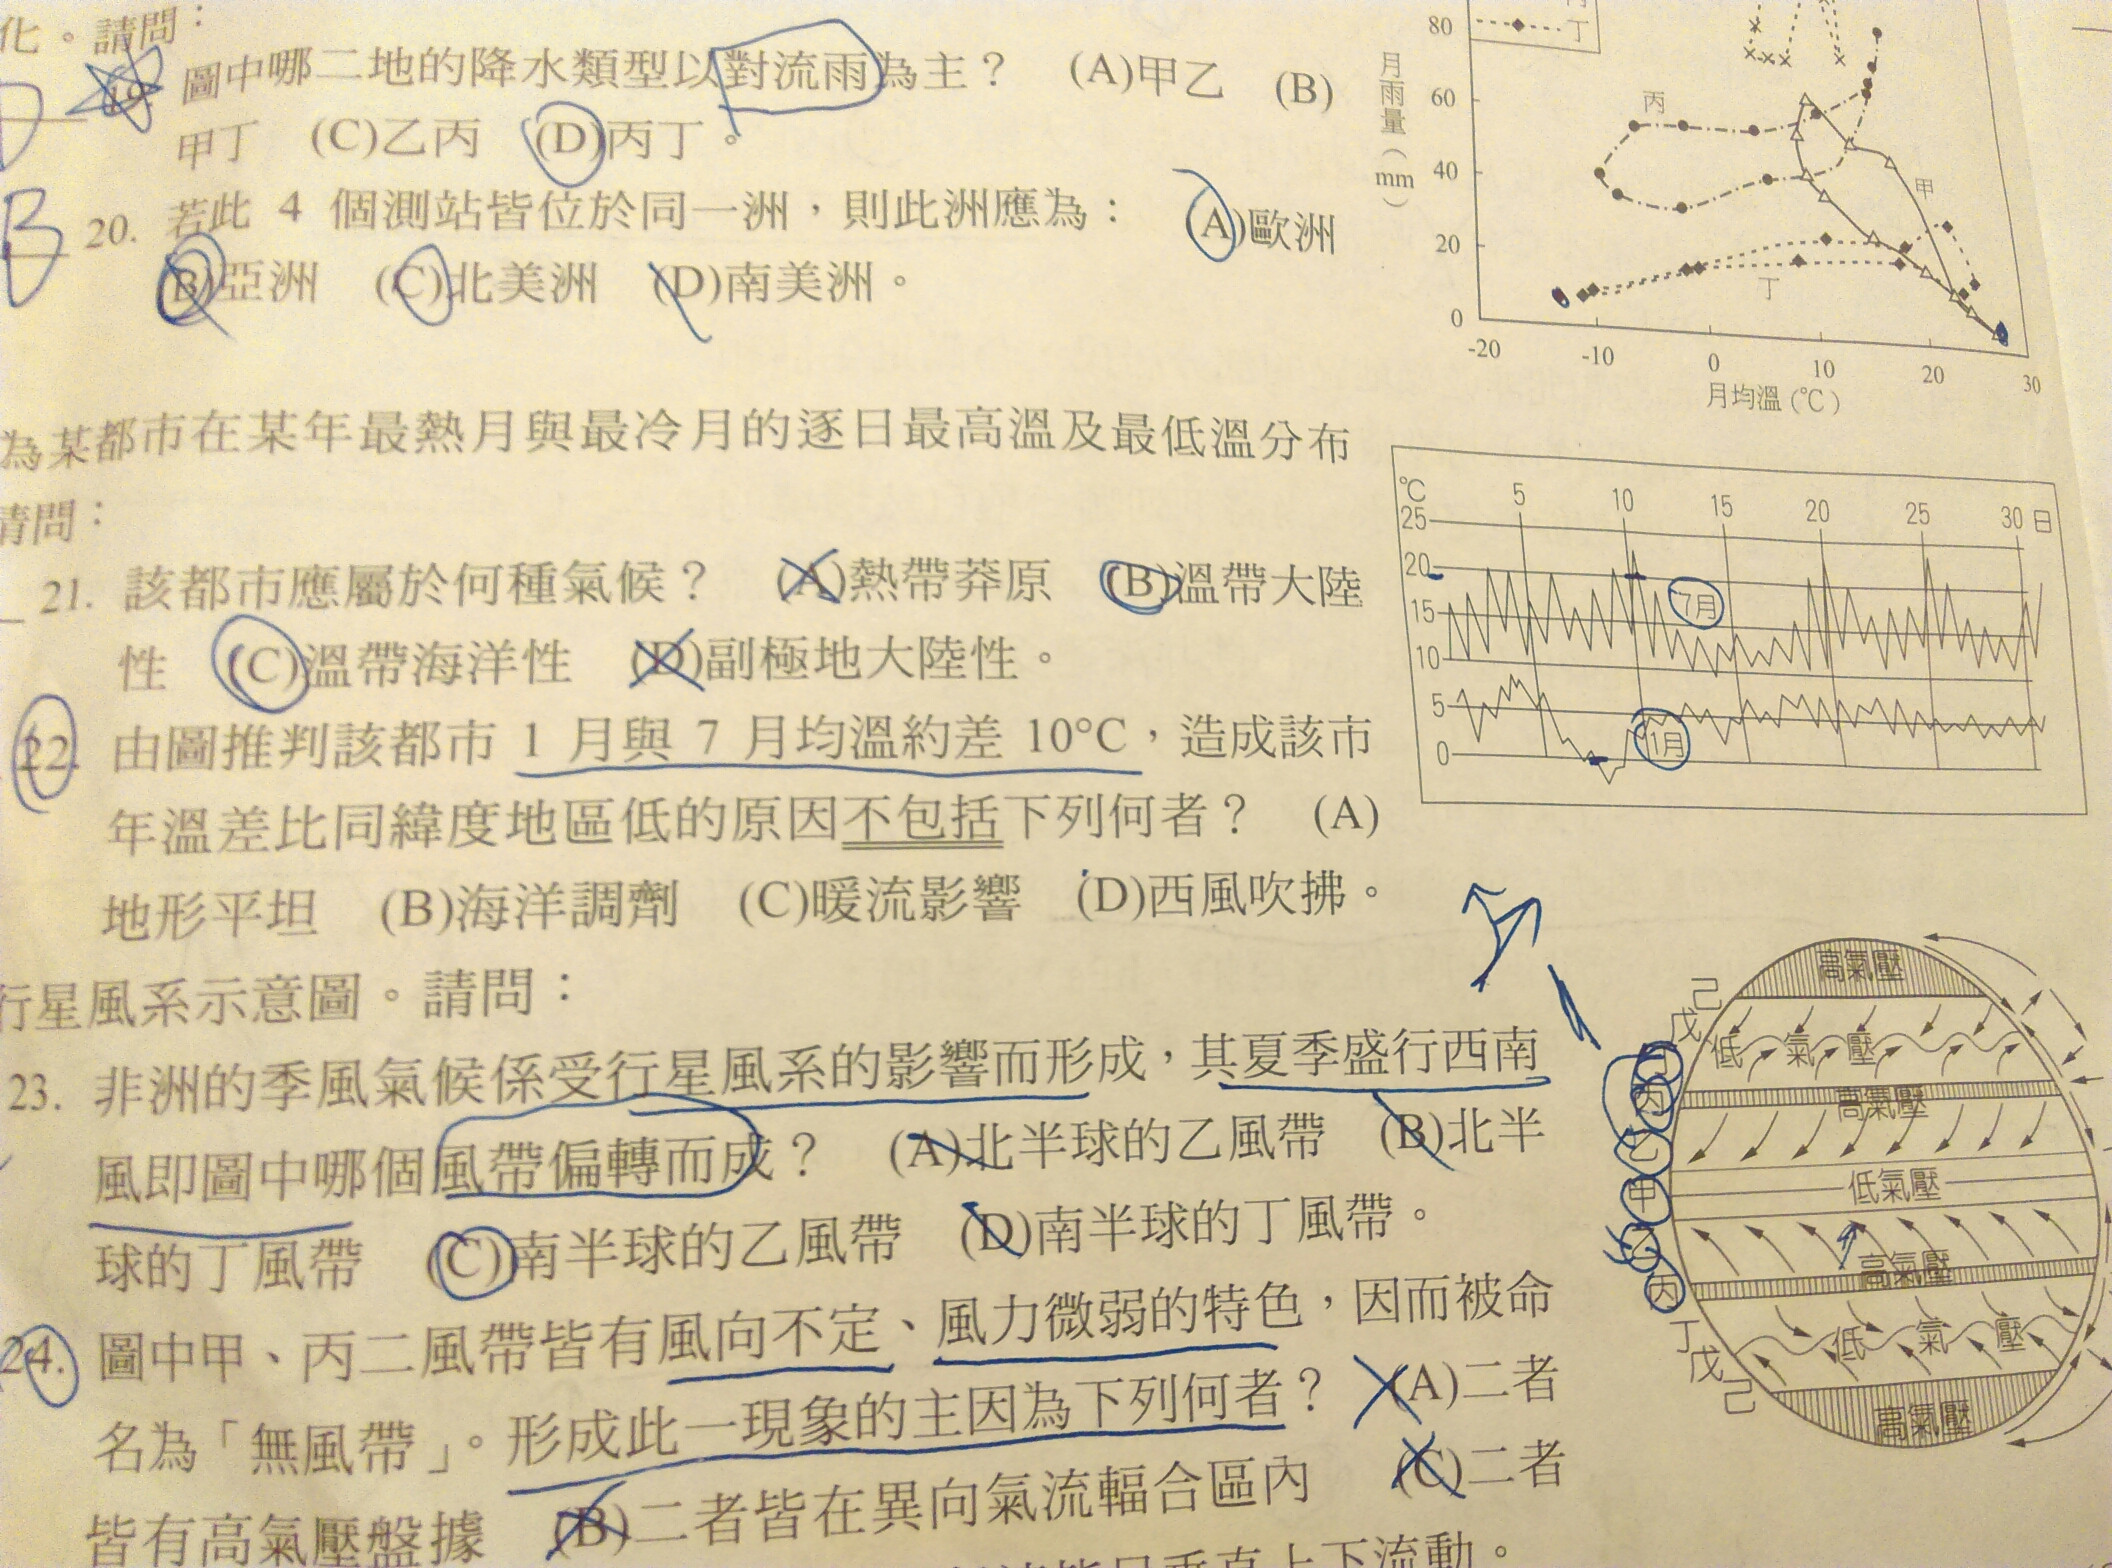 化。請問：
19. 圖中哪二地的降水類型以對流雨為主？ (A)甲乙 (B)
甲丁 (C)乙丙 (D)丙丁。
D
20. 若此 4 個測站皆位於同一洲，則此洲應為： (A)歐洲
(B)亞洲 (C)北美洲 (D)南美洲。
B
丁
月雨量(mm)
80
60
40
20
0
-20 -10 0 10 20 30
月均溫(℃)
丙
甲
丁
為某都市在某年最熱月與最冷月的逐日最高溫及最低溫分布
請問：
21. 該都市應屬於何種氣候？ (A)熱帶莽原 (B)溫帶大陸
性 (C)溫帶海洋性 (D)副極地大陸性。
22. 由圖推判該都市 1 月與 7 月均溫約差 10°C，造成該市
年溫差比同緯度地區低的原因不包括下列何者？ (A)
地形平坦 (B)海洋調劑 (C)暖流影響 (D)西風吹拂。
℃ 5 10 15 20 25 30 日
25
20
15
10
5
0
7月
1月
行星風系示意圖。請問：
23. 非洲的季風氣候係受行星風系的影響而形成，其夏季盛行西南
風即圖中哪個風帶偏轉而成？ (A)北半球的乙風帶 (B)北半
球的丁風帶 (C)南半球的乙風帶 (D)南半球的丁風帶。
24. 圖中甲、丙二風帶皆有風向不定、風力微弱的特色，因而被命
名為「無風帶」。形成此一現象的主因為下列何者？ (A)二者
皆有高氣壓盤據 (B)二者皆在異向氣流輻合區內 (C)二者
垂直上下流動。
高氣壓
低氣壓
高氣壓
低氣壓
高氣壓
低氣壓
高氣壓
己
戊
丁
丙
乙
甲
乙
丙
丁
戊
己